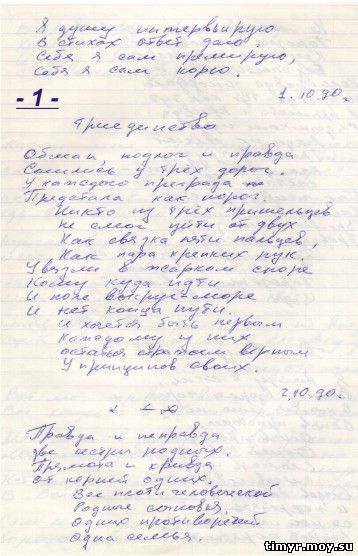 Я душу интервьирую
В стихах ответ даю.
Себя я сам премирую,
Себя я сам корю.
- 1 -
1.10.90г.
Триединство
Обман, подлог и правда
Сошлись у трёх дорог.
У каждого преграда
Предстала как порог.
Никто из трёх пришельцев
Не смог уйти от двух
Как связка пяти пальцев,
Как пара крепких рук.
Увязли в жарком споре
Кому куда идти
И поле вокруг-море
И нет конца пути.
И хочется быть первым
Каждому у них
остаться стражем верным
У принципов своих.
2.10.90г.
Правда и неправда
две сестры родных.
Прямота и кривда
от корней одних.
Все плоти человеческой
Родные сыновья,
Одних противоречий
Одна семья.
timyr.moy.su